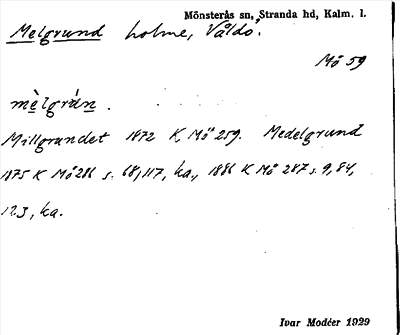 Mönsterås sn, Stranda hd, Kalm. l.
Melgrund holme, Våldö.
Mö 59
mèlgràn.
Millgrundet 1872 K Mö 259. Medelgrund
1875 K Mö 286 s. 68, 117, ka., 1886 K Mö 287 s. 9, 84,
123, ka.
Ivar Modéer 1929